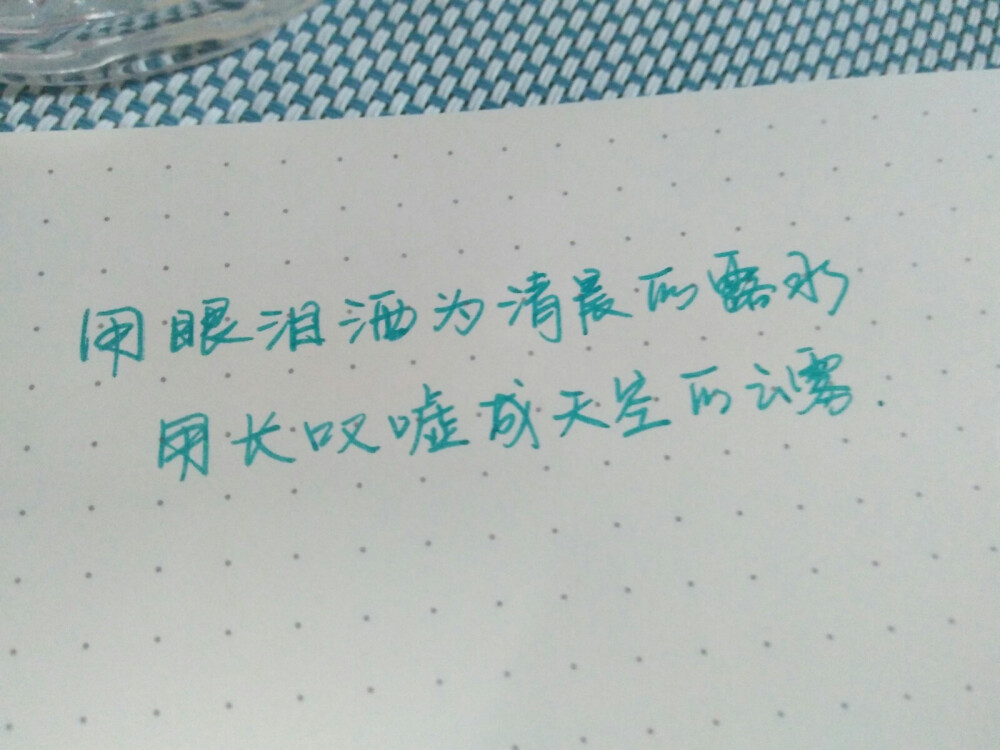 用眼泪洒为清晨的露水
用长叹嘘成天空的云雾.